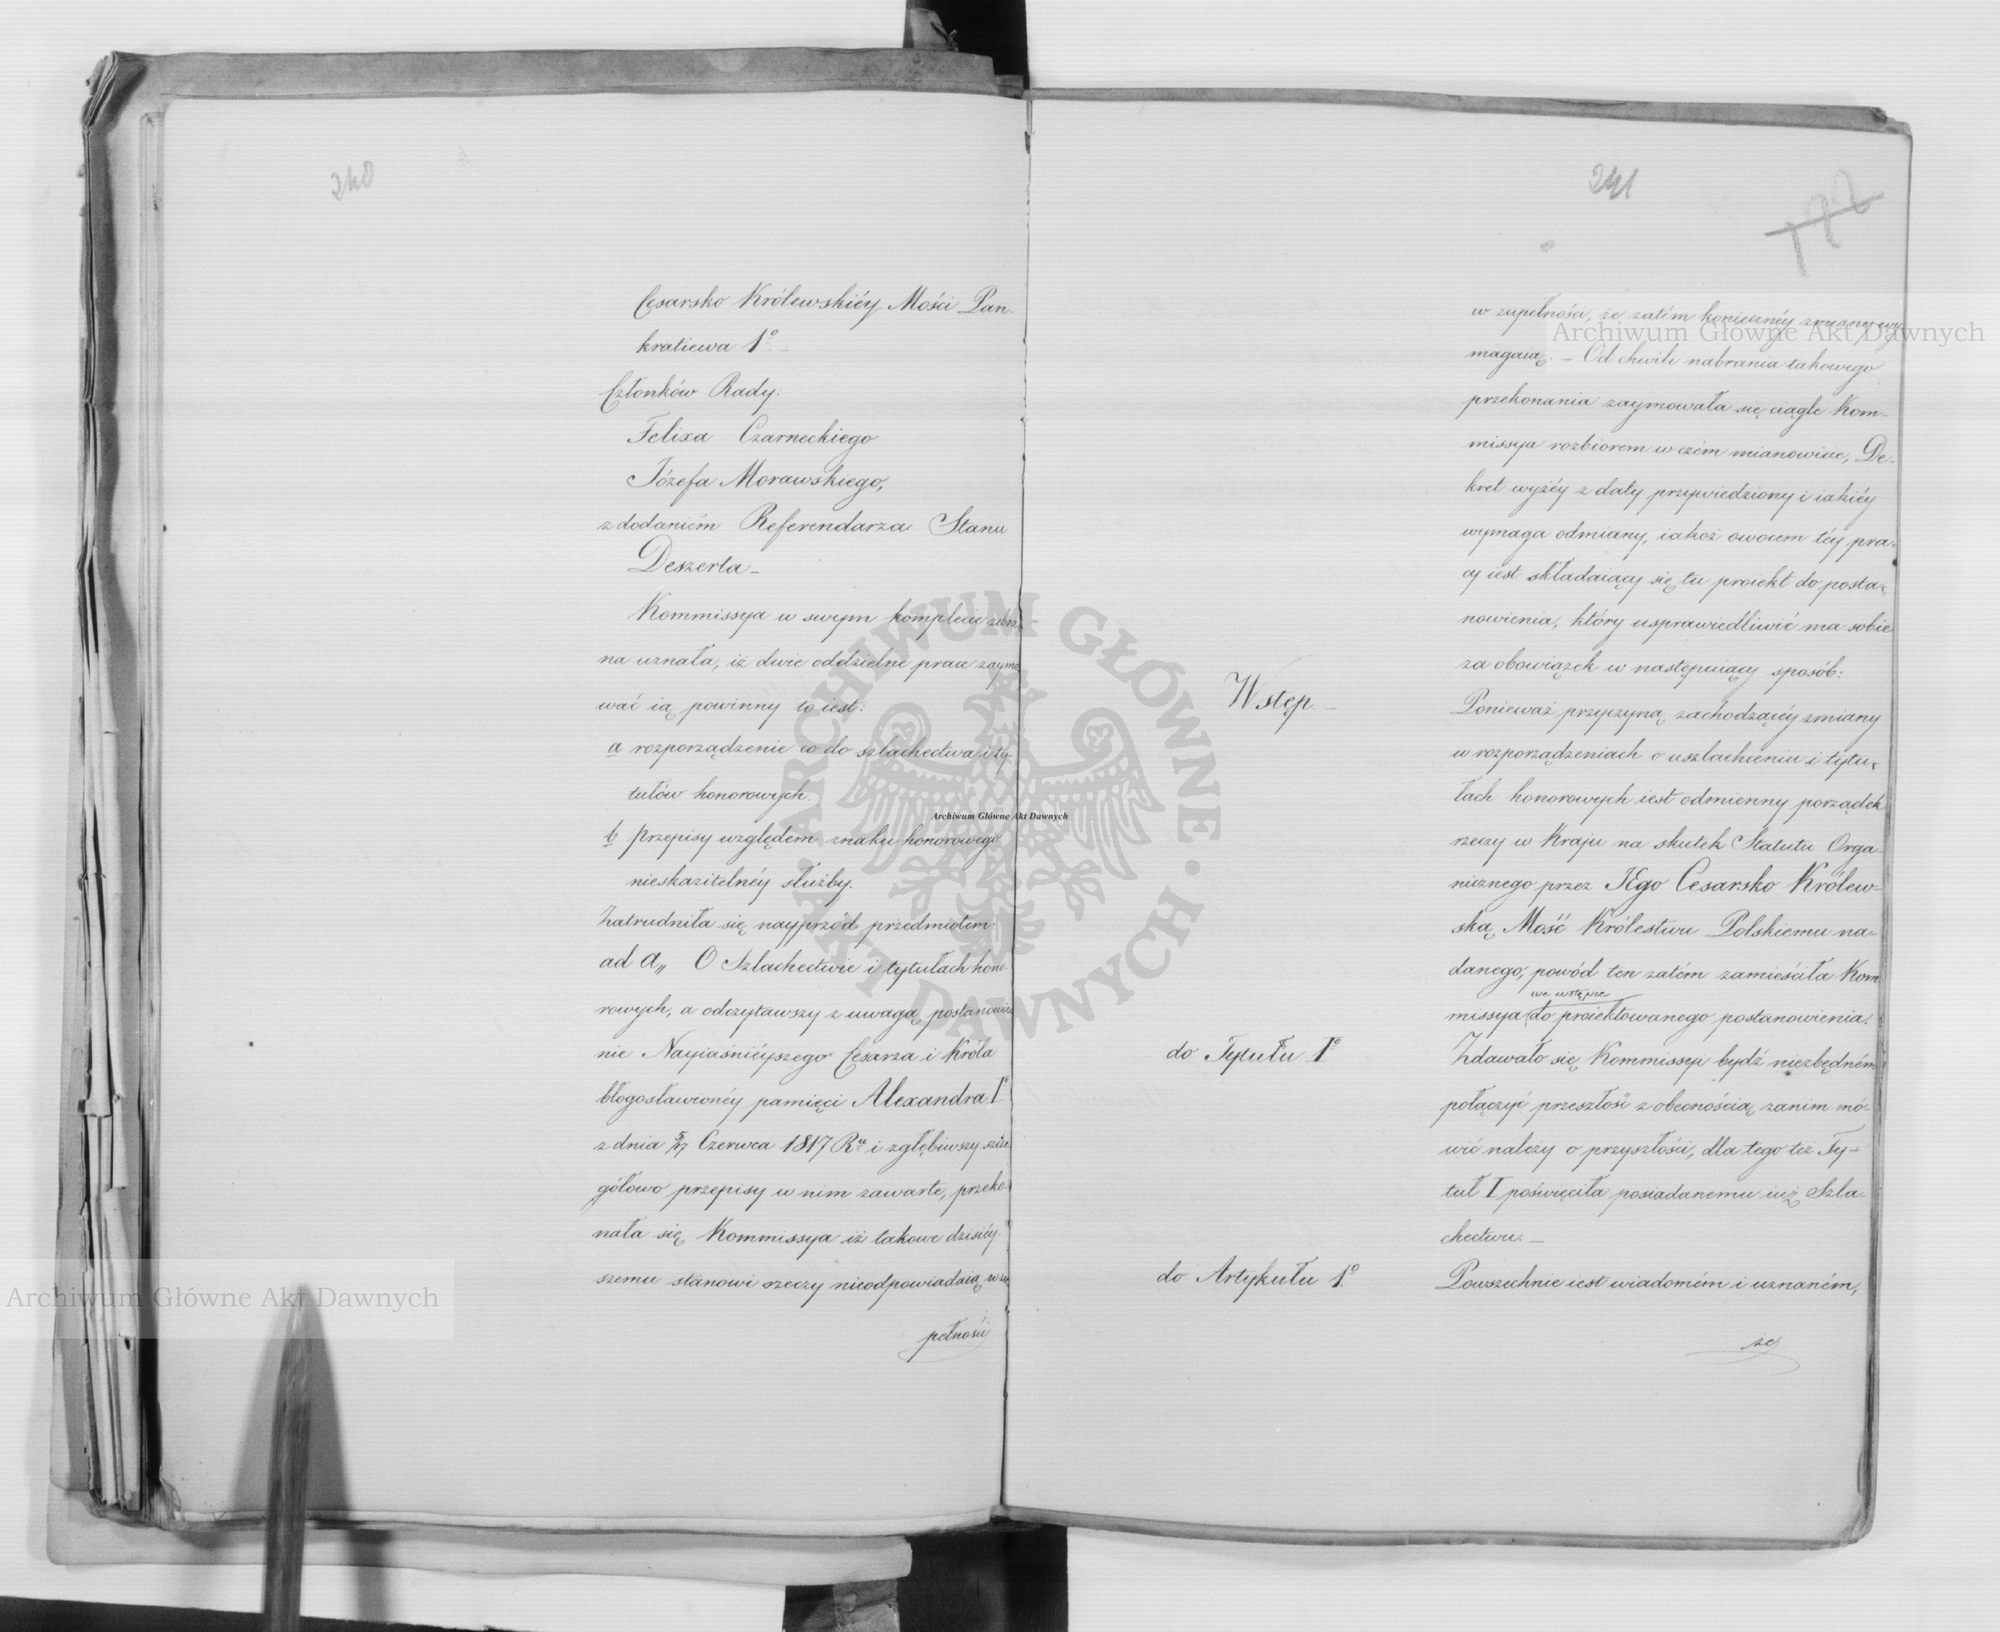 240
Cesarsko Królewskiéy Mości Pan-
kratiewa 1º. –
Członków Rady:
Felixa Czarneckiego
Józefa Morawskiego,
z dodaniém Referendarza Stanu
Deszerta –
Kommissya w swym komplecie zebra-
na uznała, iż dwie oddzielne prace zaymo
wać ią powinny to iest:
a rozporządzenie co do szlachectwa i ty-
tułów honorowych.
b przepisy względem znaku honorowego
nieskazitelnéy służby.
Zatrudniła się nayprzód przedmiotem:
ad a,, O Szlachectwie i tytułach hono-
rowych, a odczytawszy z uwagą postanowie
nie Nayiaśniéyszego Cesarza i Króla
błogosławionéy pamięci Alexandra Iº
z dnia 5/17 Czerwca 1817 R. i zgłębiwszy szcze
gółowo przepisy w nim zawarte, przeko-
nała się Kommissya iż takowe dzisiéy-
szemu stanowi rzeczy nieodpowiadaią w zu
pełności
241
w zupełności, że zatém koniecznéy zmiany wy
magaią. – Od chwili nabrania takowego
przekonania zaymowała się ciągle Kom-
missya rozbiorem w czém mianowicie, De-
kret wyżéy z daty przywiedziony i iakiéy
wymaga odmiany, iakoż owocem téy pra-
cy iest składaiący się tu proiekt do posta-
nowienia, który usprawiedliwić ma sobie
za obowiązek w następuiący sposób:
Wstęp –
Ponieważ przyczyną zachodzącéy zmiany
w rozporządzeniach o uszlachceniu i tytu-
łach honorowych iest odmienny porządek
rzeczy w Kraju na skutek Statutu Orga-
nicznego przez JEgo Cesarsko Królew-
ską Mość Królestwu Polskiemu na-
danego, powód ten zatém zamieściła Kom
we wstępie
missya do proiektowanego postanowienia.
do Tytułu Iº
Zdawało się Kommissyi bydź niezbędném
połączyć przeszłość z obecnością zanim mó-
wić należy o przyszłości, dla tego też Ty-
tuł I poświęciła posiadanemu iuż Szla-
chectwu. –
do Artykułu 1º
Powszechnie iest wiadomém i uznaném,
że
Archiwum Główne Akt Dawnych
Archiwum Główne Akt Dawnych
Archiwum Główne Akt Dawnych
ARCHIWUM GŁÓWNE AKT DAWNYCH